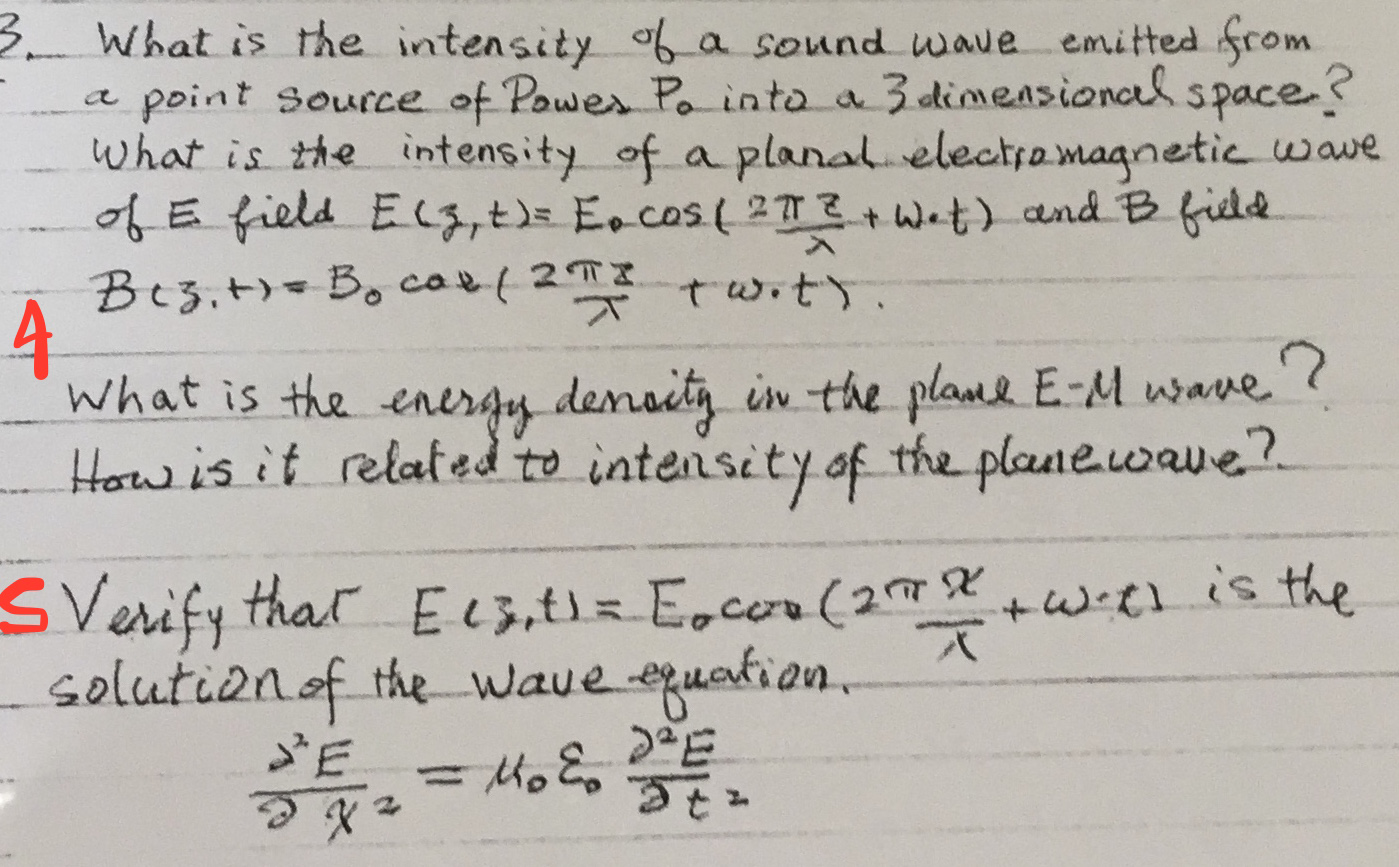 3. What is the intensity of a sound wave emitted from
a point source of Power P₀ into a 3 dimensional space?
What is the intensity of a planal electromagnetic wave
of E field E(z,t)= E₀ cos( 2πz/λ + ω.t) and B field
B(z,t)= B₀ cos( 2πz/λ + ω.t).
4
What is the energy density in the plane E-M wave?
How is it related to intensity of the plane wave?
5 Verify that E(z,t)= E₀ cos(2πx/λ + ω.t) is the
solution of the wave equation.
∂²E/∂x² = μ₀ε₀ ∂²E/∂t²